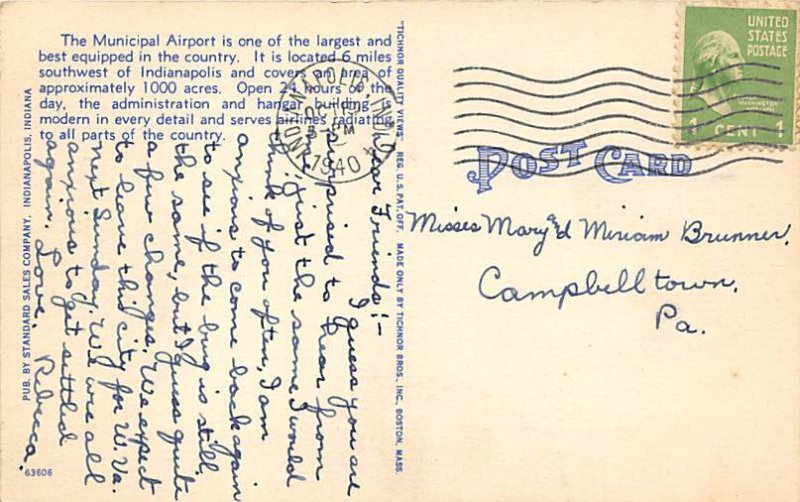 The Municipal Airport is one of the largest and
best equipped in the country. It is located 6 miles
southwest of Indianapolis and covers an area of
approximately 1000 acres. Open 24 hours of the
day, the administration and hangar building is
modern in every detail and serves airlines radiating
to all parts of the country.
PUB. BY STANDARD SALES COMPANY, INDIANAPOLIS, INDIANA
63606
"TICHNOR QUALITY VIEWS" REG. U. S. PAT. OFF. MADE ONLY BY TICHNOR BROS., INC., BOSTON, MASS.
INDIANAPOLIS, IND.
PM
1940
UNITED
STATES
POSTAGE
WASHINGTON
1 CENT 1
POST CARD
Misses Mary and Miriam Brunner.
Campbelltown,
Pa.
Dear Friends:-
I guess you are
surprised to hear from
me, just the same I would
think of you often, I am
anxious to come back again
to see if the burg is still
the same, but I guess quite
a few changes. We expect
to leave this city for W. Va.
next Sunday. We are all
anxious to get settled
again. Love, Rebecca.